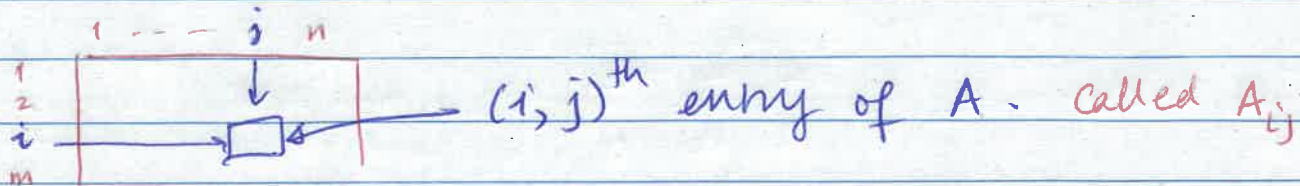 1 - - - j n
1
2
i (i, j)th entry of A. Called Aij
m